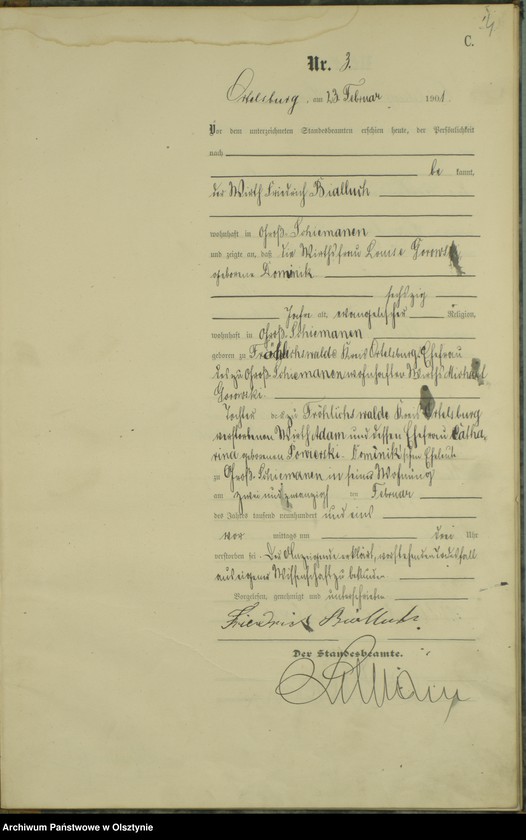 C.
Nr. 3.
Ortelsburg, am 23 Februar 1901
Vor dem unterzeichneten Standesbeamten erschien heute, der Persönlichkeit
nach
be kannt,
der Wirth Friedrich Bialluch
wohnhaft in Groß-Schiemanen
und zeigte an, daß die Wirthsfrau Louise Gorowski
geborene Dominik
sechszig
Jahre alt, evangelischer Religion,
wohnhaft in Groß-Schiemanen
geboren zu Fröhlichswalde Kreis Ortelsburg, Ehefrau
des zu Groß-Schiemanen wohnhaften Wirths Michael
Gorowski.
Tochter des zu Fröhlichswalde Kreis Ortelsburg
verstorbenen Wirth Adam und dessen Ehefrau Catha-
rina geborenen Dominik'schen Eheleute
zu Groß-Schiemanen in seiner Wohnung
am zwei und zwanzigsten Februar
des Jahres tausend neunhundert und eins
vor mittags um drei Uhr
verstorben sei. Der Anzeigende erklärt, vorstehenden Todesfall
aus eigener Wissenschaft zu bekunden
Vorgelesen, genehmigt und unterschrieben
Friedrich Bialluch
Der Standesbeamte.
Archiwum Państwowe w Olsztynie